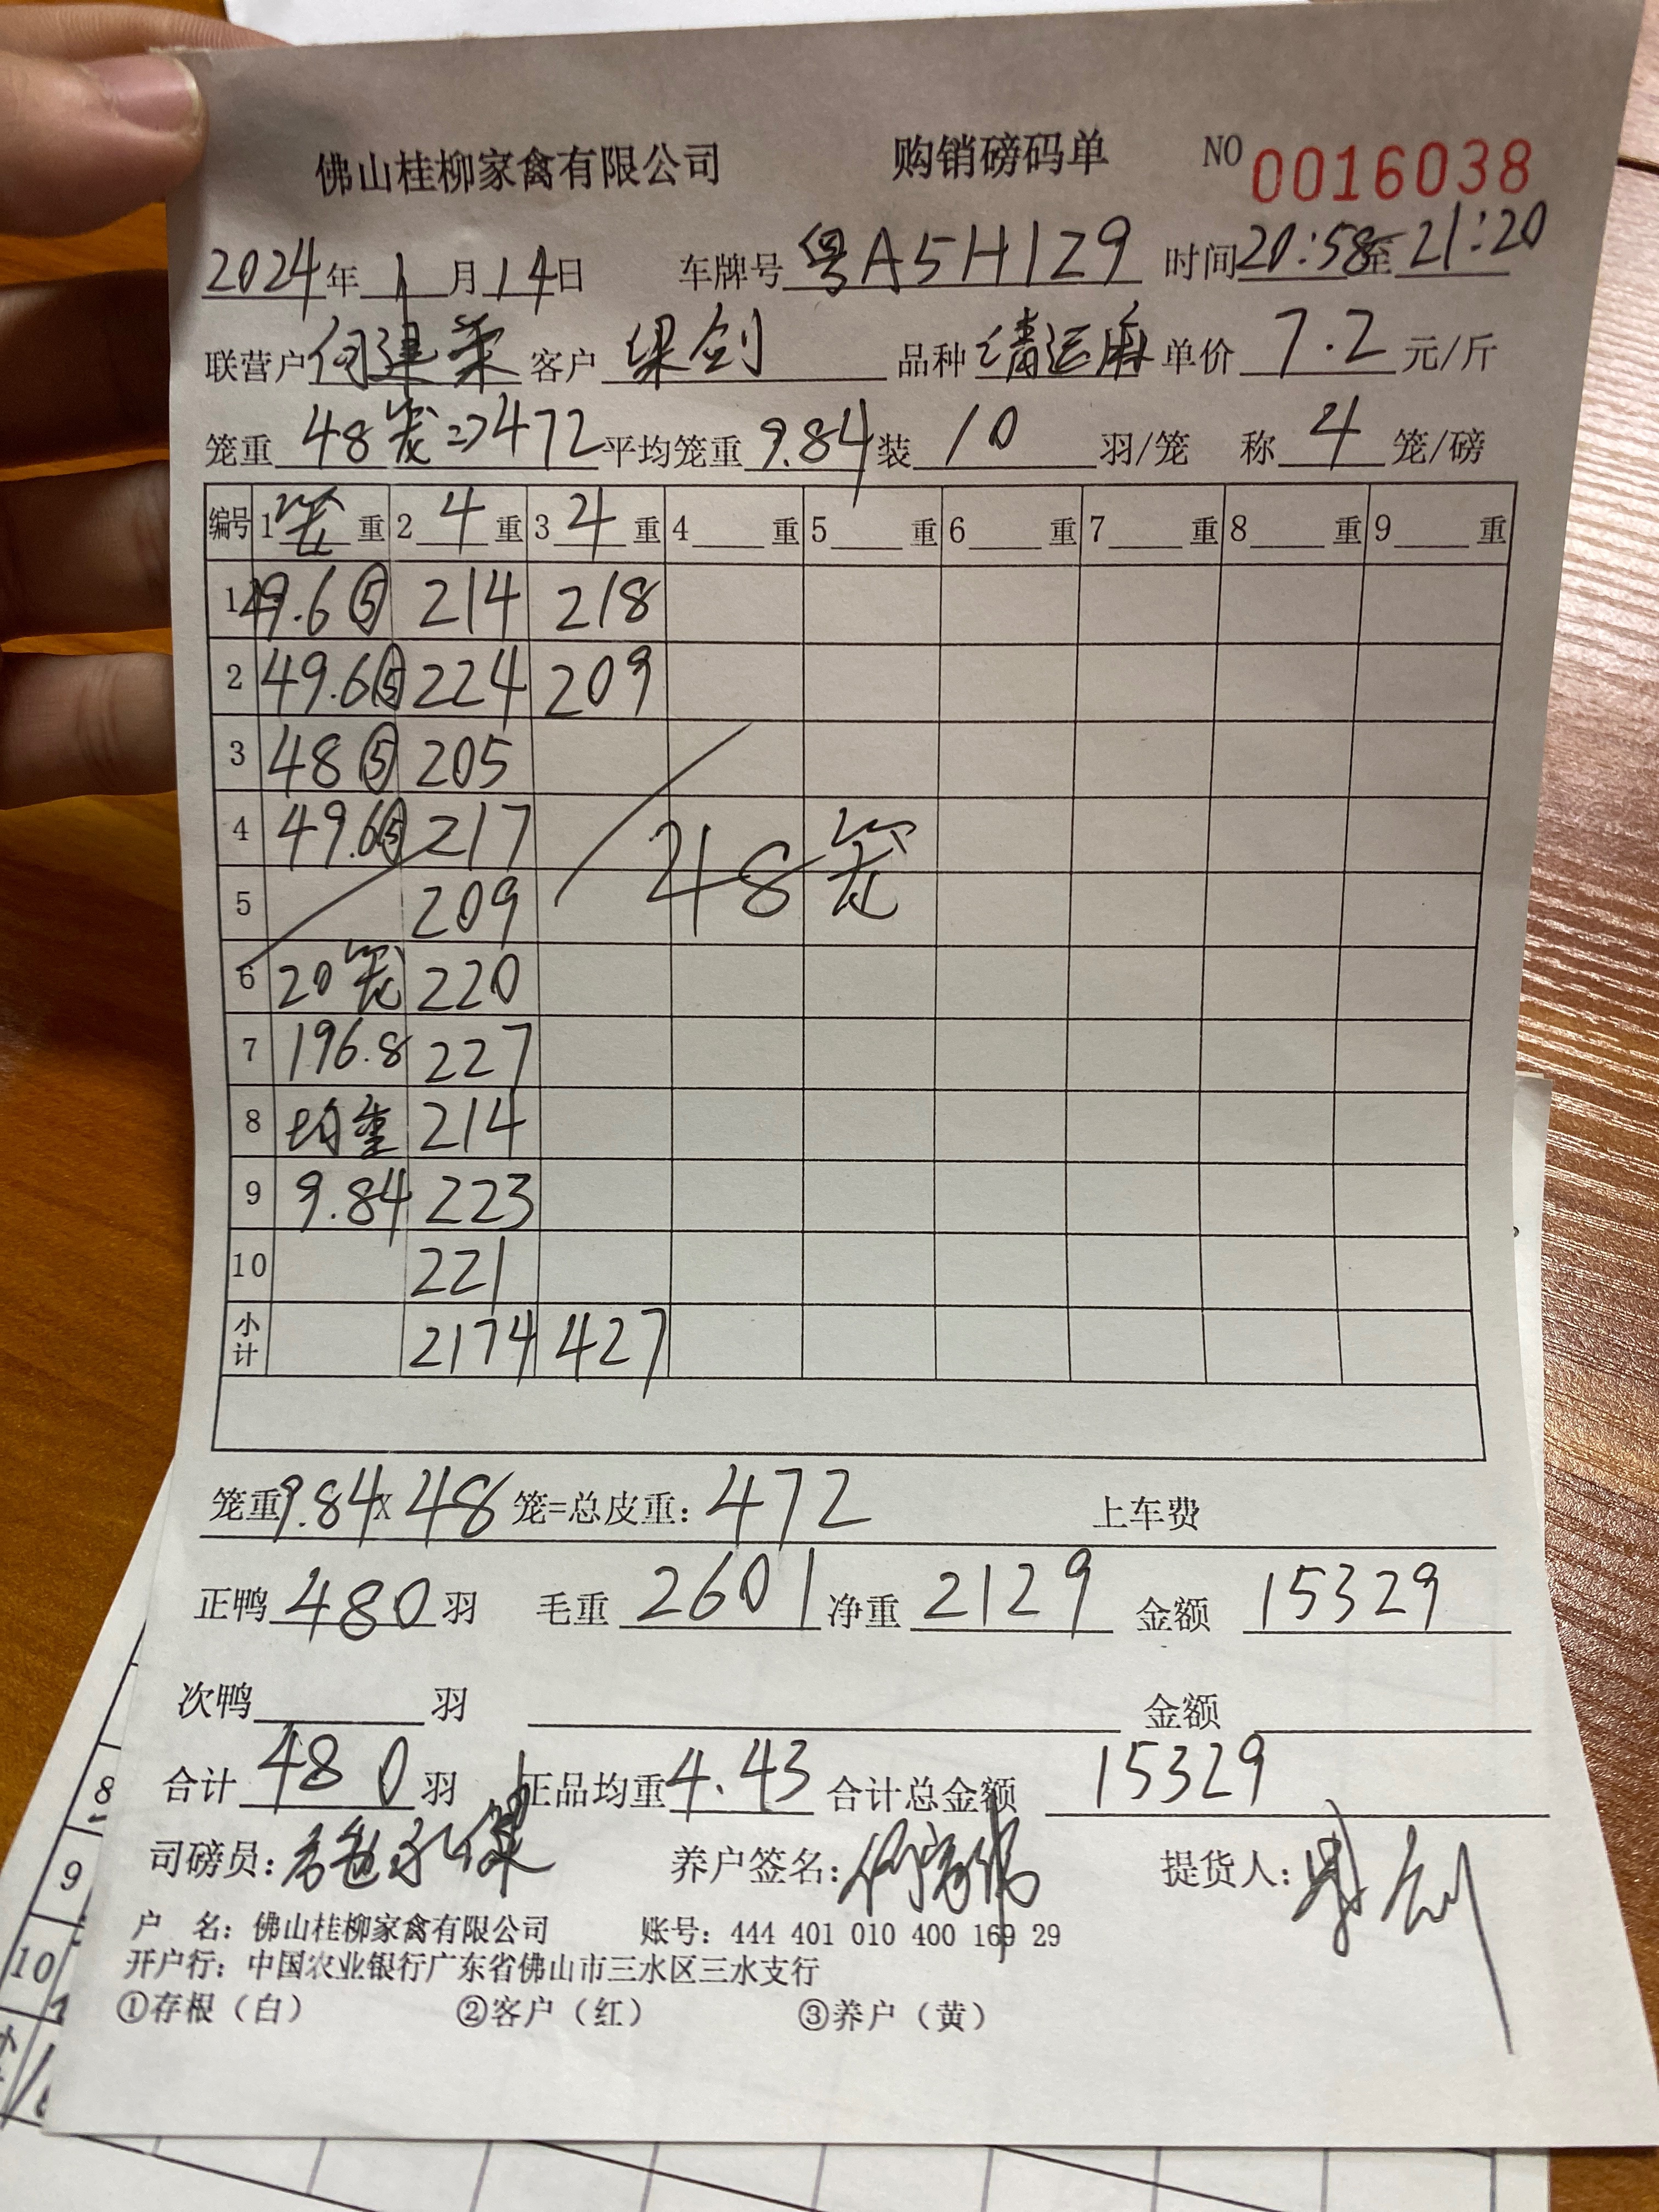 佛山桂柳家禽有限公司 购销磅码单 NO 0016038
2024年1月14日 车牌号 粤A5H129 时间20:58至21:20
联营户 何建荣 客户 梁剑 品种 清远麻 单价 7.2 元/斤
笼重 48笼=>472 平均笼重 9.84 装 10 羽/笼 称 4 笼/磅
编号 1笼重 2 4重 3 4重 4 重 5 重 6 重 7 重 8 重 9 重
1 49.6⑤ 214 218
2 49.6⑤ 224 209
3 48⑤ 205
4 49.6⑤ 217 48笼
5 209
6 20笼 220
7 196.8 227
8 均重 214
9 9.84 223
10 221
小计 2174 427
笼重9.84X48笼=总皮重:472 上车费
正鸭 480 羽 毛重 2601 净重 2129 金额 15329
次鸭 羽 金额
合计 480 羽 正品均重 4.43 合计总金额 15329
司磅员: 养户签名: 提货人:梁剑
户 名: 佛山桂柳家禽有限公司 账号: 444 401 010 400 169 29
开户行: 中国农业银行广东省佛山市三水区三水支行
①存根(白) ②客户(红) ③养户(黄)
8
9
10